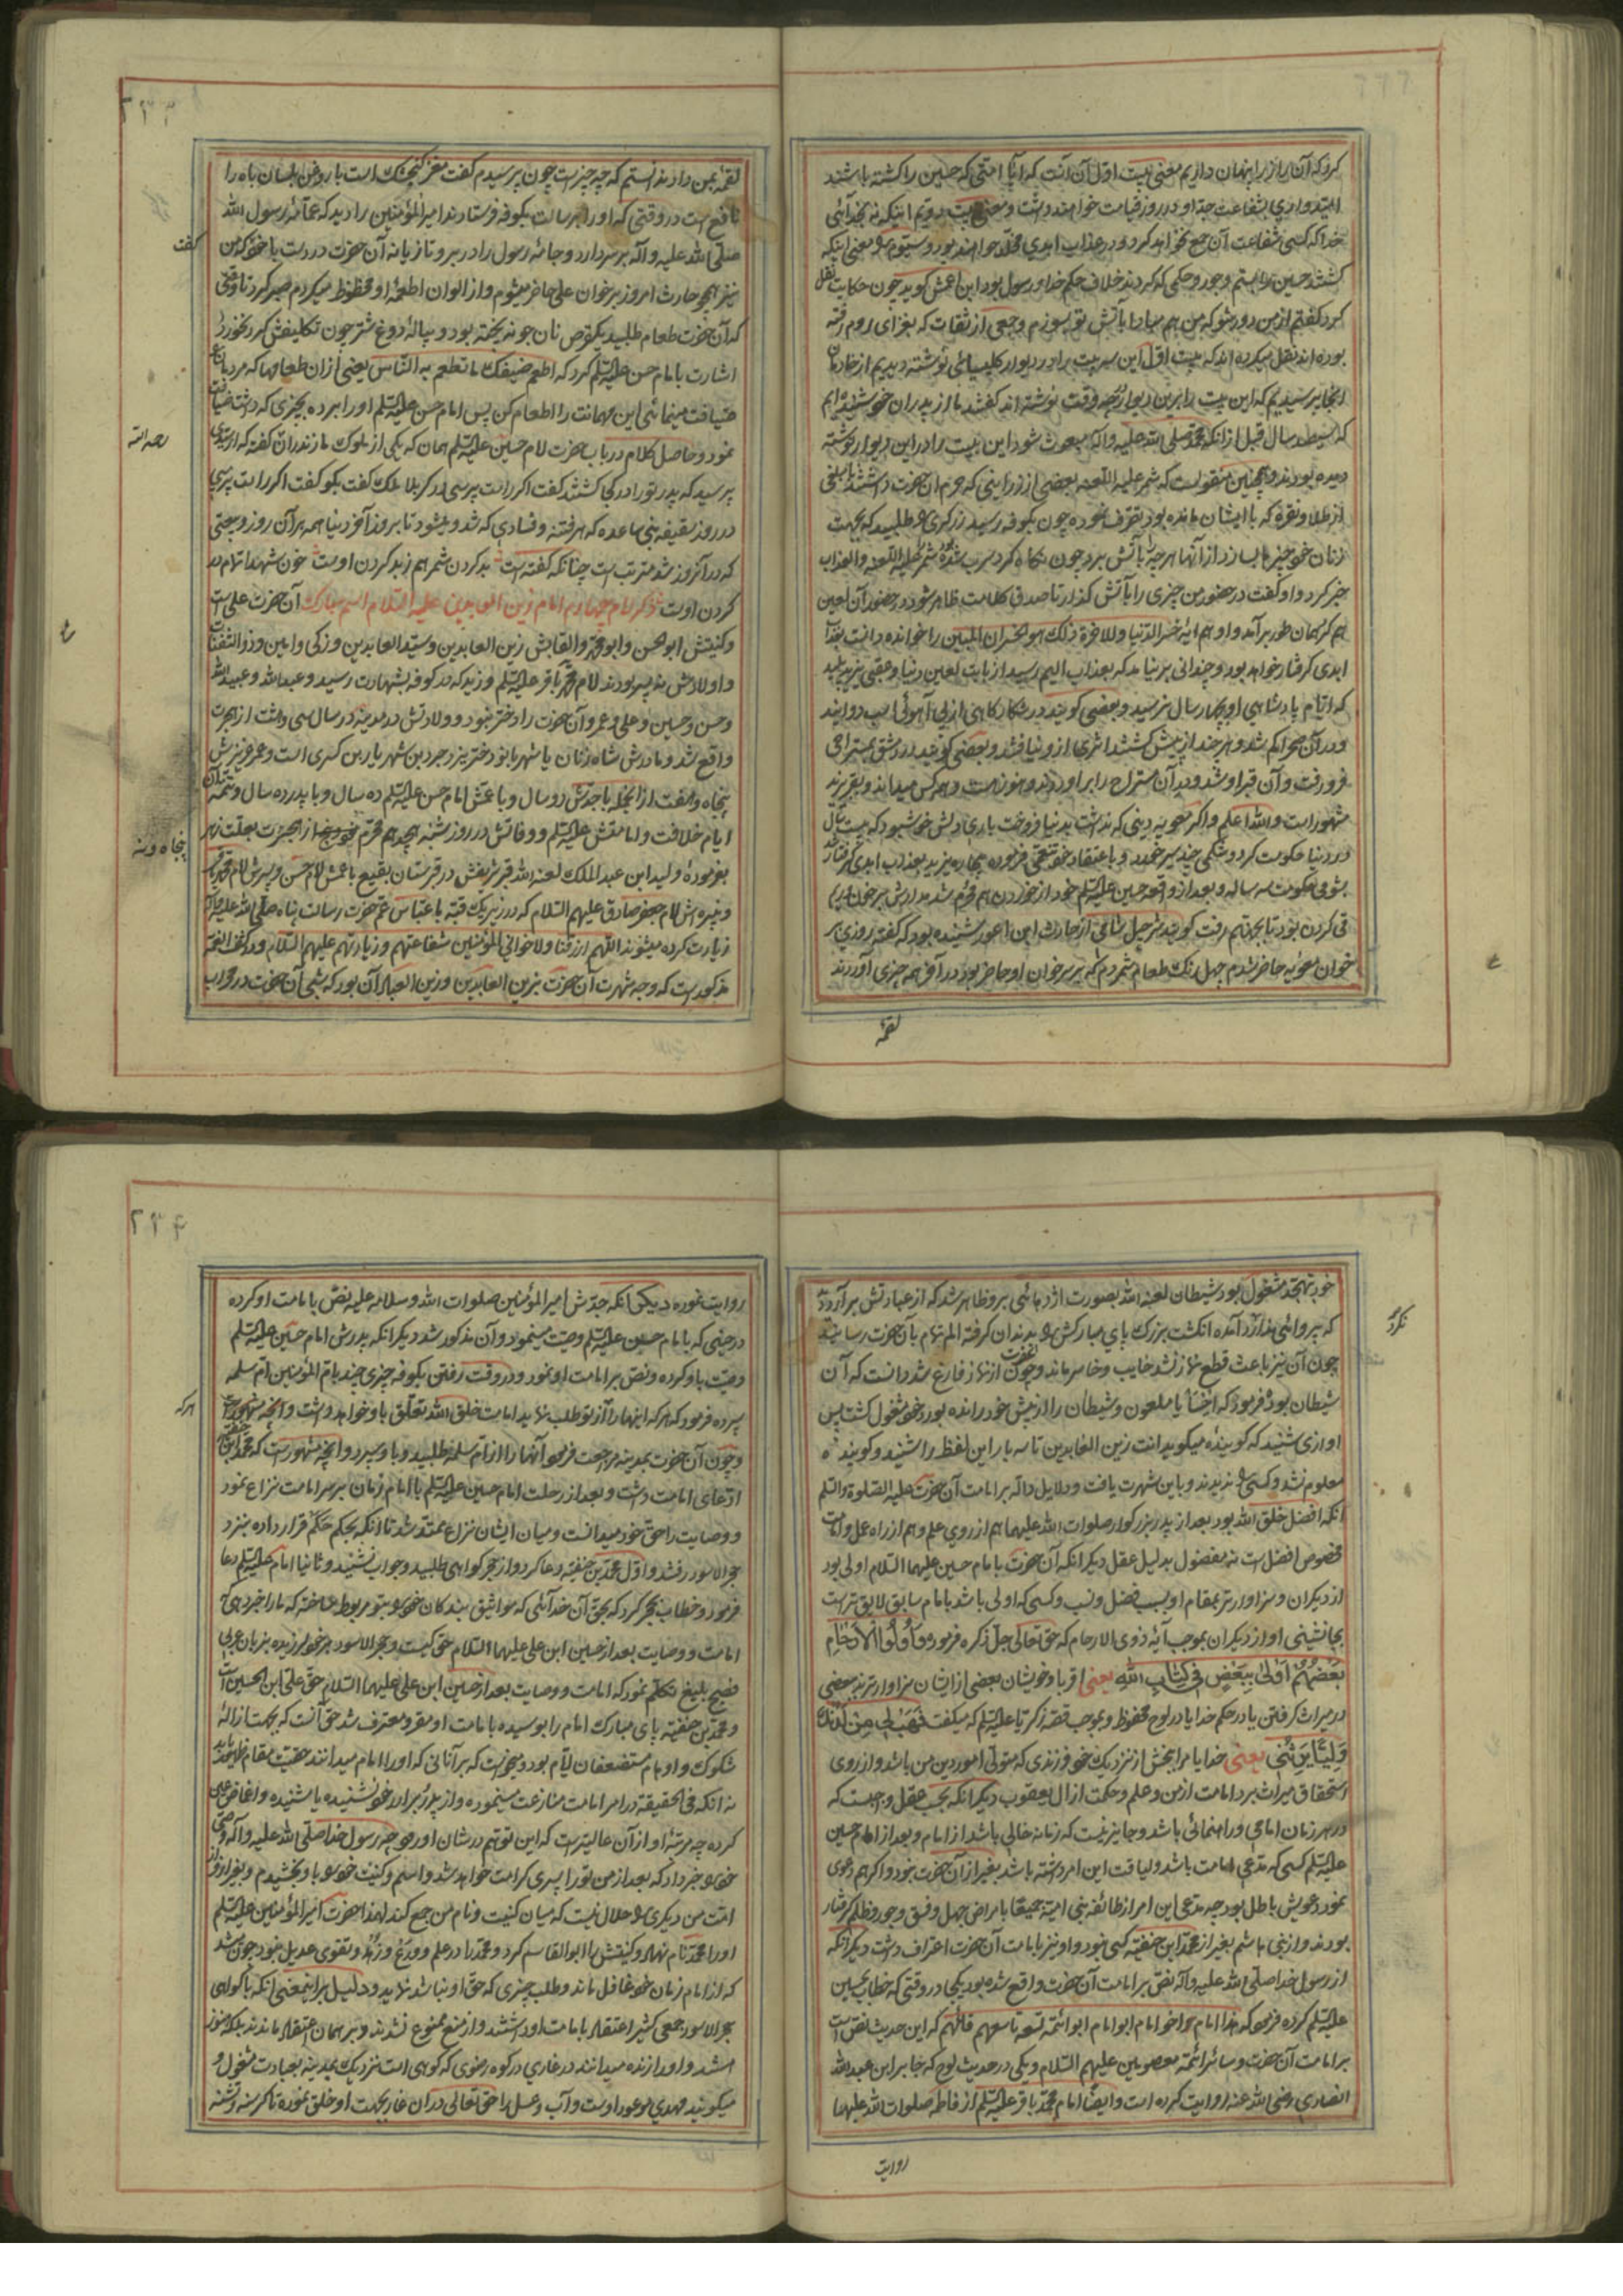 کرد که آن راز را پنهان داریم معنی بیت اول آن آنست که آیا امتی که حسین را کشته باشند
امیدواری بشفاعت جد او در روز قیامت خواهند داشت و معنی بیت دویم اینکه نه بخدائی
خدا که کسی شفاعت آن جمع نخواهد کرد و در عذاب ابدی مخلد خواهند بود و سیوم معنی اینکه
کشتند حسین را بستم و جور و حکمی که کردند خلاف حکم خدا و رسول بود ابن اعمش کوید چون حکایت نقل
کرد کفتم از من دور شو که من هم مبادا بآتش تو بسوزم و جمعی از ثقات که بغزای روم رفته
بوده اند نقل میکرده اند که بیت اول این سه بیت را در دیوار کلیسیائی نوشته دیدیم از خادمان
آنجا پرسیدیم که این بیت را برین دیوار چه وقت نوشته اند کفتند ما از پدران خود شنیده ایم
که سیصد سال قبل از آنکه محمد صلی الله علیه وآله مبعوث شود این بیت را در این دیوار نوشته
دیده بودند و همچنین منقولست که شمر علیه اللعنه بعضی از زر اینی که حرم آن حضرت داشتند با بلغی
از طلا و نقره که با ایشان مانده بود تصرف نموده چون بکوفه رسید زرکری را طلبید که بجهت
زنان خود چیزها بسازد از آنها هرچه بآتش برد چون نکاه کرد سرب شده شمر علیه اللعنه والعذاب
خبر کرد و او کفت در حضور من چیزی را بآتش کذار تا صدق کلامت ظاهر شود در حضور آن لعین
هم کرد همان طور برآمد و او هم آیه خسر الدنیا والاخرة ذلک هو الخسران المبین را خوانده دانست بعذاب
ابدی کرفتار خواهد بود و چندانی بر نیامد که بعذاب الیم رسید از بابت لعین دنیا و عقبی یزید پلید
که ایام پادشاهی او بچهار سال نرسید و بعضی کویند در شکارکاهی از پی آهوئی اسب دوانید
و در آن صحرا کم شد و هر چند از پیش کشتند اثری ازو نیافتند و بعضی کویند در دمشق بمستراحی
فرو رفت و آن قبر او شد و دیر آن مستراح را بر آوردند و هنوز هست و همه کس میدانند و بقبر یزید
مشهور است والله اعلم و اکر معویه دینی که نداشت بدنیا فروخت باری دلش خوش بود که بیست سال
در دنیا حکومت کرد و شکمی چند سیر خورد و باعتقاد خود تنعمی فرمود بیچاره یزید بعذاب ابدی کرفتار شد
بشومی حکومت سه ساله و بعد از واقعه حسین علیه السلم خود از خوردن هم محروم شد مدارش بر خون
قی کردن بود تا بجهنم رفت کویند شرحبیل شامی از حارث ابن اعور شنیده بود که کفته روزی بر
خوان معویه حاضر شدم چهل رنک طعام شمردم که بر سر خوان او حاضر بود در آخر همه چیزی آوردند
لقمه
۲۳۳
لقمه بمن دادند ندانستم که چه چیز است چون پرسیدم کفت مغز کنجشک است با روغن بلسان باه را
نافع است در وقتی که او را برسالت بکوفه فرستادند امیرالمؤمنین را دید که عمامه رسول الله
صلی الله علیه وآله بر سر دارد و جامه رسول را در بر و تازیانه آن حضرت در دست با خود کفت من
نیز همچو حارث امروز بر خوان علی حاضر میشوم و از الوان اطعمه او محظوظ میکردم صبر کرد تا وقتی
که آن حضرت طعام طلبید یک قرص نان جو ند پخته بود و پیاله دوغ شتر چون تکلیفش کرد نخورد
اشارت بامام حسن علیه السلم کرد که اطعم ضیفک ما تطعم به الناس یعنی از آن طعامها که مردم را
ضیافت مینمائی این مهمانت را اطعام کن پس امام حسن علیه السلم او را برده بچیزی که داشت ضیافت
نمود و حاصل کلام در باب حضرت امام حسین علیه السلم همان که یکی از ملوک مازندران کفته که از سیدی
پرسید که پدر تو را در کجا کشتند کفت اکر راست پرسی در کربلا ملک کفت بکو کفت اکر راست پرسی
در روز سقیفه بنی ساعده که هر فتنه و فسادی که شد و میشود تا بروز آخر دنیا همه بر آن روز و بیعتی
که در آنروز شد مترتب است چنانکه کفته است بد کردن شمر هم ز بد کردن اوست خون شهدا تمام در
کردن اوست ذکر امام چهارم امام زین العابدین علیه السلام اسم مبارک آن حضرت علی است
و کنیتش ابوالحسن و ابومحمد و القابش زین العابدین و سید العابدین و زکی و امین و ذو الثفنات
و اولادش نه پسر بودند امام محمد باقر علیه السلم و زید که در کوفه بشهادت رسید و عبدالله و عبیدالله
و حسن و حسین و علی و عمر و آن حضرت را دختر نبود و ولادتش در مدینه در سال سی و هشت از هجرت
واقع شد و مادرش شاه زنان یا شهربانو دختر یزدجرد بن شهریار بن کسری است و عمر عزیزش
پنجاه و هفت از آنجمله با جدش دو سال و با عمش امام حسن علیه السلم ده سال و با پدر ده سال و تتمه آن
ایام خلافت و امامتش علیه السلم و وفاتش در روز شنبه هجدهم محرم نود و پنج از هجرت بعلت زهر
بفرموده ولید ابن عبدالملک لعنه الله قبر شریفش در قبرستان بقیع با عمش امام حسن و پسرش امام محمد باقر
و نبیره اش امام جعفر صادق علیهم السلام که در زیر یک قبه با عباس عم حضرت رسالت پناه صلی الله علیه وآله
زیارت کرده میشوند اللهم ارزقنا ولاخوانی المؤمنین شفاعتهم وزیارتهم علیهم السلام و در کشف الغمه
مذکور است که وجه شهرت آن حضرت بزین العابدین و زین العباد آن بود که شبی آن حضرت در محراب
کفت
رحمه الله
پنجاه و نه
خود بتهجد مشغول بود شیطان لعنه الله بصورت اژدهائی برو ظاهر شد که از عبادتش برآرد
که پروائی ندارد آمده انکشت بزرک پای مبارکش را بدندان کرفته الم تمام بآن حضرت رسانید
چون آن نیز باعث قطع نماز نشد خایب و خاسر ماند و چون آنحضرت از نماز فارغ شد دانست که آن
شیطان بود فرمود که اخسأ یا ملعون و شیطان را از پیش خود رانده بورد خود مشغول کشت پس
آوازی شنید که کوینده میکوید انت زین العابدین تا سه بار این لفظ را شنید و کوینده
معلوم نشد و کسی را ندیدند و باین شهرت یافت و دلایل داله بر امامت آن حضرت علیه الصلوة والسلم
آنکه افضل خلق الله بود بعد از پدر بزرکوار صلوات الله علیهما هم از روی علم و هم از راه عمل و امامت
مخصوص افضل است نه مفضول بدلیل عقل دیکر آنکه آن حضرت بامام حسین علیهما السلام اولی بود
از دیکران و سزاوارتر بمقام او بسبب فضل و نسب و کسی که اولی باشد بامام سابق لایق تر است
بجانشینی او از دیکران بموجب آیه ذوی الارحام که حق تعالی جل ذکره فرموده وَأُولُوا الْأَرْحَامِ
بَعْضُهُمْ أَوْلَى بِبَعْضٍ فِي كِتَابِ اللهِ یعنی اقربا و خویشان بعضی از ایشان سزاوارترند ببعضی
در میراث کرفتن یا در حکم خدا یا در لوح محفوظ و بموجب قصه زکریا علیه السلم که میکفت فَهَبْ لِي مِنْ لَدُنْكَ
وَلِيًّا يَرِثُنِي یعنی خدایا مرا ببخش از نزدیک خود فرزندی که متولی امور دین من باشد و از روی
استحقاق میراث برد امامت از من و علم و حکمت از آل یعقوب دیکر آنکه بحسب عقل واجبست که
در هر زمان امامی و راهنمائی باشد و جایز نیست که زمانه خالی باشد از امام و بعد از امام حسین
علیه السلم کسی که مدعی امامت باشد و لیاقت این امر داشته باشد بغیر از آن حضرت نبود و اکر هم دعوی
نمود دعویش باطل بود چه مدعی این امر از طائفه بنی امیه جمیعا بامراض جهل و فسق و جور و ظلم کرفتار
بودند و از بنی هاشم بغیر از محمد ابن حنفیه کسی نبود و او نیز بامامت آن حضرت اعتراف داشت دیکر آنکه
از رسول خدا صلی الله علیه وآله نص بر امامت آن حضرت واقع شده بود یکجا در وقتی که خطاب بحسین
علیه السلم کرده فرمود که هذا امام اخو امام ابو امام ابو ائمة تسعة تاسعهم قائمهم که این حدیث نص است
بر امامت آن حضرت و سائر ائمه معصومین علیهم السلام و یکی در حدیث لوح که جابر ابن عبدالله
انصاری رضی الله عنه روایت کرده است و ایضا امام محمد باقر علیه السلم از فاطمه صلوات الله علیهما
روایت
۲۳۴
روایت نموده دیکر آنکه جدش امیرالمؤمنین صلوات الله وسلامه علیه نص بامامت او کرده
در حینی که بامام حسین علیه السلم وصیت مینمود و آن مذکور شد دیکر آنکه پدرش امام حسین علیه السلم
وصیت باو کرده و نص بر امامت او نمود و در وقت رفتن بکوفه چیزی چند بام المؤمنین ام سلمه
سپرده فرمود که هر که اینها را از تو طلب نماید امامت خلق الله تعلق باو خواهد داشت و آنچه مشهور است
و چون آن حضرت بمدینه مراجعت فرمود آنها را از ام سلمه طلبید و باو سپرد و آنچه مشهور است که محمد ابن حنفیه
ادعای امامت داشت و بعد از رحلت امام حسین علیه السلم با امام زمان بر سر امامت نزاع نمود
و وصایت را حق خود میدانست و میان ایشان نزاع ممتد شد تا آنکه بحکم حکم قرار داده بنزد
حجر الاسود رفتند و اول محمد بن حنفیه دعا کرد و از حجر کواهی طلبید و جواب نشنید و ثانیا امام علیه السلم دعا
فرمود و خطاب بحجر کرد که بحق آن خدائی که مواثیق بندکان خود را بتو مربوط ساخته که ما را خبر ده که
امامت و وصایت بعد از حسین ابن علی علیهما السلام حق کیست و حجر الاسود بر خود لرزیده بزبان عربی
فصیح بلیغ تکلم نمود که امامت و وصایت بعد از حسین ابن علی علیهما السلام حق علی ابن الحسین است
و محمد بن حنفیه پای مبارک امام را بوسیده بامامت او مقر و معترف شد حق آنست که بجهت ازاله
شکوک و اوهام مستضعفان لئام بود و میخواست که بر آنانی که او را امام میدانند حقیقت مقام ظاهر نماید
نه آنکه فی الحقیقة در امر امامت منازعت مینموده و از پدر و برادر خود نشنیده یا شنیده و اغماض عین
کرده چه مرتبه او از آن عالیترست که این توهم در شان او رود چه رسول خدا صلی الله علیه وآله وصی
خود را خبر داد که بعد از من تو را پسری کرامت خواهد شد و اسم و کنیت خود را باو بخشیدم و بغیر از او از
امت من دیکری را حلال نیست که میان کنیت و نام من جمع کند لهذا حضرت امیرالمؤمنین علیه السلم
او را محمد نام نهاد و کنیتش را ابوالقاسم کرد و محمد را در علم و ورع و زهد و تقوی عدیل نبود چون میشد
که از امام زمان خود غافل ماند و طلب چیزی که حق او نباشد نماید و دلیل بر اینمعنی آنکه با کواهی
حجر الاسود جمعی کثیر اعتقاد بامامت او داشتند و از منع ممنوع نشدند و بر همان اعتقاد ماندند بلکه هنوز
هستند و او را زنده میدانند در غاری در کوه رضوی که کوهی است نزدیک بمدینه بعبادت مشغول و
میکویند مهدی موعود اوست و آب و عسل را حق تعالی در آن غار بجهت او خلق نموده تا کرسنه و تشنه